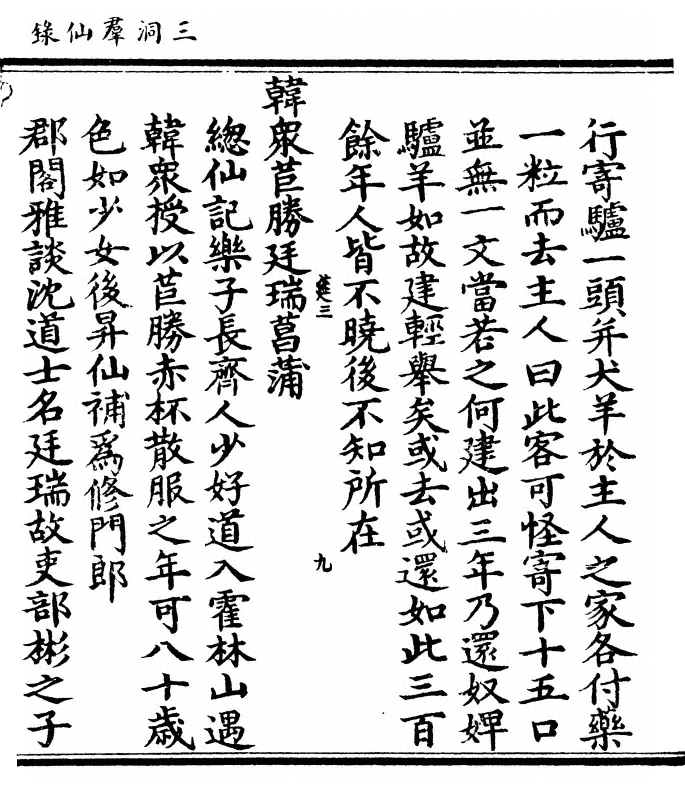 三洞羣仙錄
行寄驢一頭并犬羊於主人之家各付藥
一粒而去主人曰此客可怪寄下十五口
並無一文當若之何建出三年乃還奴婢
驢羊如故建輕舉矣或去或還如此三百
餘年人皆不曉後不知所在
九
韓衆苣勝廷瑞菖蒲
總仙記樂子長齊人少好道入霍林山遇
韓衆授以苣勝赤杯散服之年可八十歲
色如少女後昇仙補爲修門郎
郡閣雅談沈道士名廷瑞故吏部彬之子